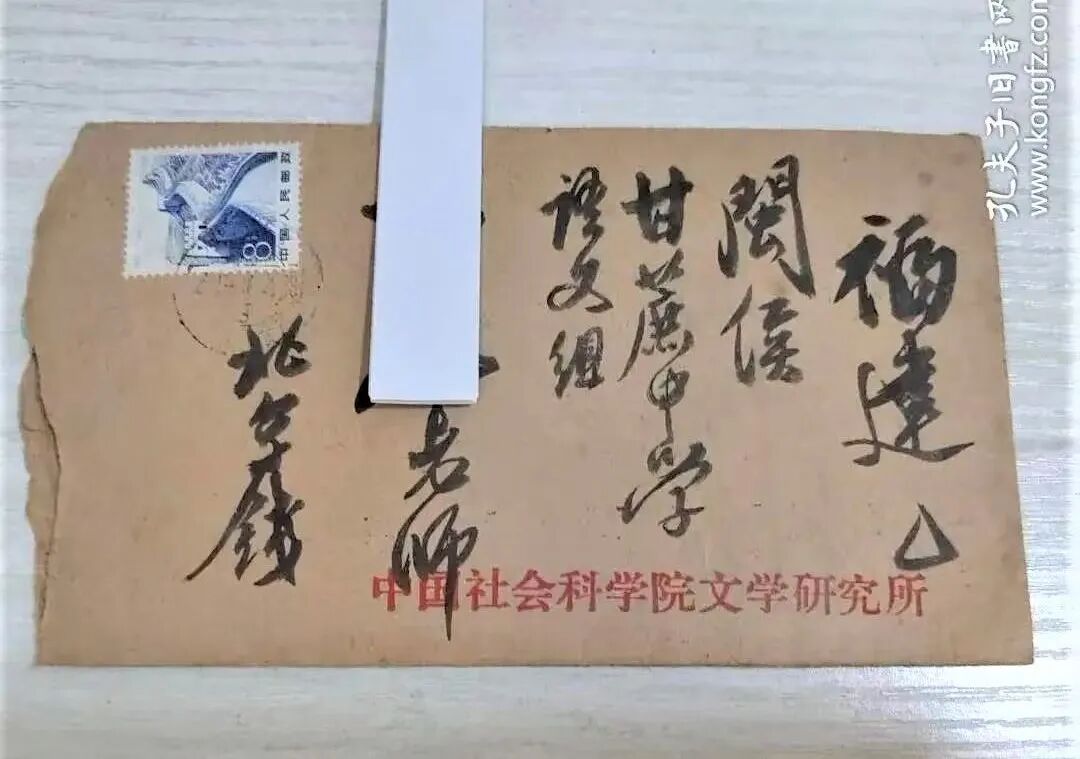 福建
閩侯
甘蔗中学
語文組
老师
北京錢
中国社会科学院文学研究所
中国人民邮政
8
孔夫子旧书网
www.kongfz.com